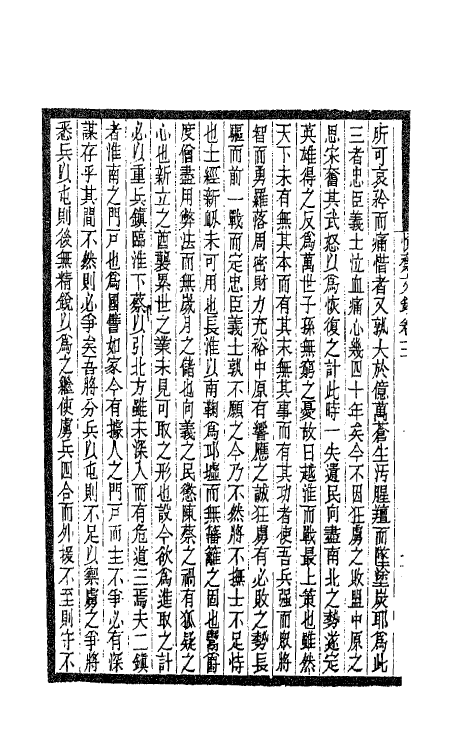 所可哀矜而痛惜者又孰大於億萬蒼生汚腥羶而墜塗炭耶爲此
三者忠臣義士泣血痛心幾四十年矣今不因狂虜之敗盟中原之
思宋奮其武怒以爲恢復之計此時一失遺民向盡南北之勢遂定
英雄得之反爲萬世子孫無窮之憂故曰越淮而戰最上策也雖然
天下未有無其本而有其末無其事而有其功者使吾兵强而眾將
智而勇羅落周密財力充裕中原有響應之誠狂虜有必敗之勢長
驅而前一戰而定忠臣義士孰不願之今乃不然將不撫士不足恃
也士經新衂未可用也長淮以南鞠爲邱墟而無藩籬之固也鬻爵
度僧盡用弊法而無歲月之儲也向義之民懲陳蔡之禍有狐疑之
心也新立之酋襲累世之業未見可取之形也設今欲爲進取之計
必以重兵鎮臨淮下蔡以引北方雖未深入而有危道三焉夫二鎮
者淮南之門戸也爲國譬如家今有據人之門戸而主不爭必有深
謀存乎其間不然則必爭矣吾將分兵以屯則不足以禦虜之爭將
悉兵以屯則後無精銳以爲之繼使虜兵四合而外援不至則守不
文錄卷二